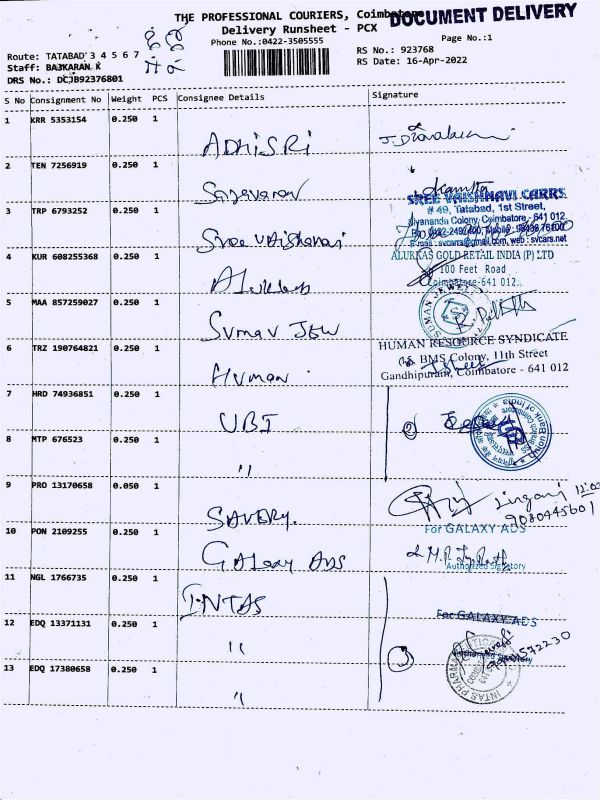 THE PROFESSIONAL COURIERS, Coimbatore
DOCUMENT DELIVERY
Delivery Runsheet - PCX
Phone No.:0422-3505555
Page No.:1
Route: TATABAD 3 4 5 6 7
RS No.: 923768
Staff: BASKARAN K
RS Date: 16-Apr-2022
DRS No.: DCJB92376801
S No Consignment No Weight PCS Consignee Details Signature
1 KRR 5353154 0.250 1 ADHISRI
2 TEN 7256919 0.250 1
SREE VAISHNAVI CARRS
# 49, Tatabad, 1st Street,
Sivananda Colony, Coimbatore - 641 012.
3 TRP 6793252 0.250 1 Sree Vaishnavi
E-mail : svcarrs@gmail.com, web : svcars.net
4 KUR 608255368 0.250 1
ALUKKAS GOLD RETAIL INDIA (P) LTD
100 Feet Road
Coimbatore-641 012.
5 MAA 857259027 0.250 1 Sumav JEW
SUMAN JEWE
6 TRZ 190764821 0.250 1 Human
HUMAN RESOURCE SYNDICATE
BMS Colony, 11th Street
Gandhipuram, Coimbatore - 641 012
7 HRD 74936851 0.250 1 UBI
2
8 MTP 676523 0.250 1 "
9 PRO 13170658 0.050 1 SAVERY.
9080445601
10 PON 2109255 0.250 1 Galaxy ADS
For GALAXY ADS
Authorized Signatory
11 NGL 1766735 0.250 1 INTAS
12 EDQ 13371131 0.250 1 "
For GALAXY ADS
3
13 EDQ 17380658 0.250 1 "